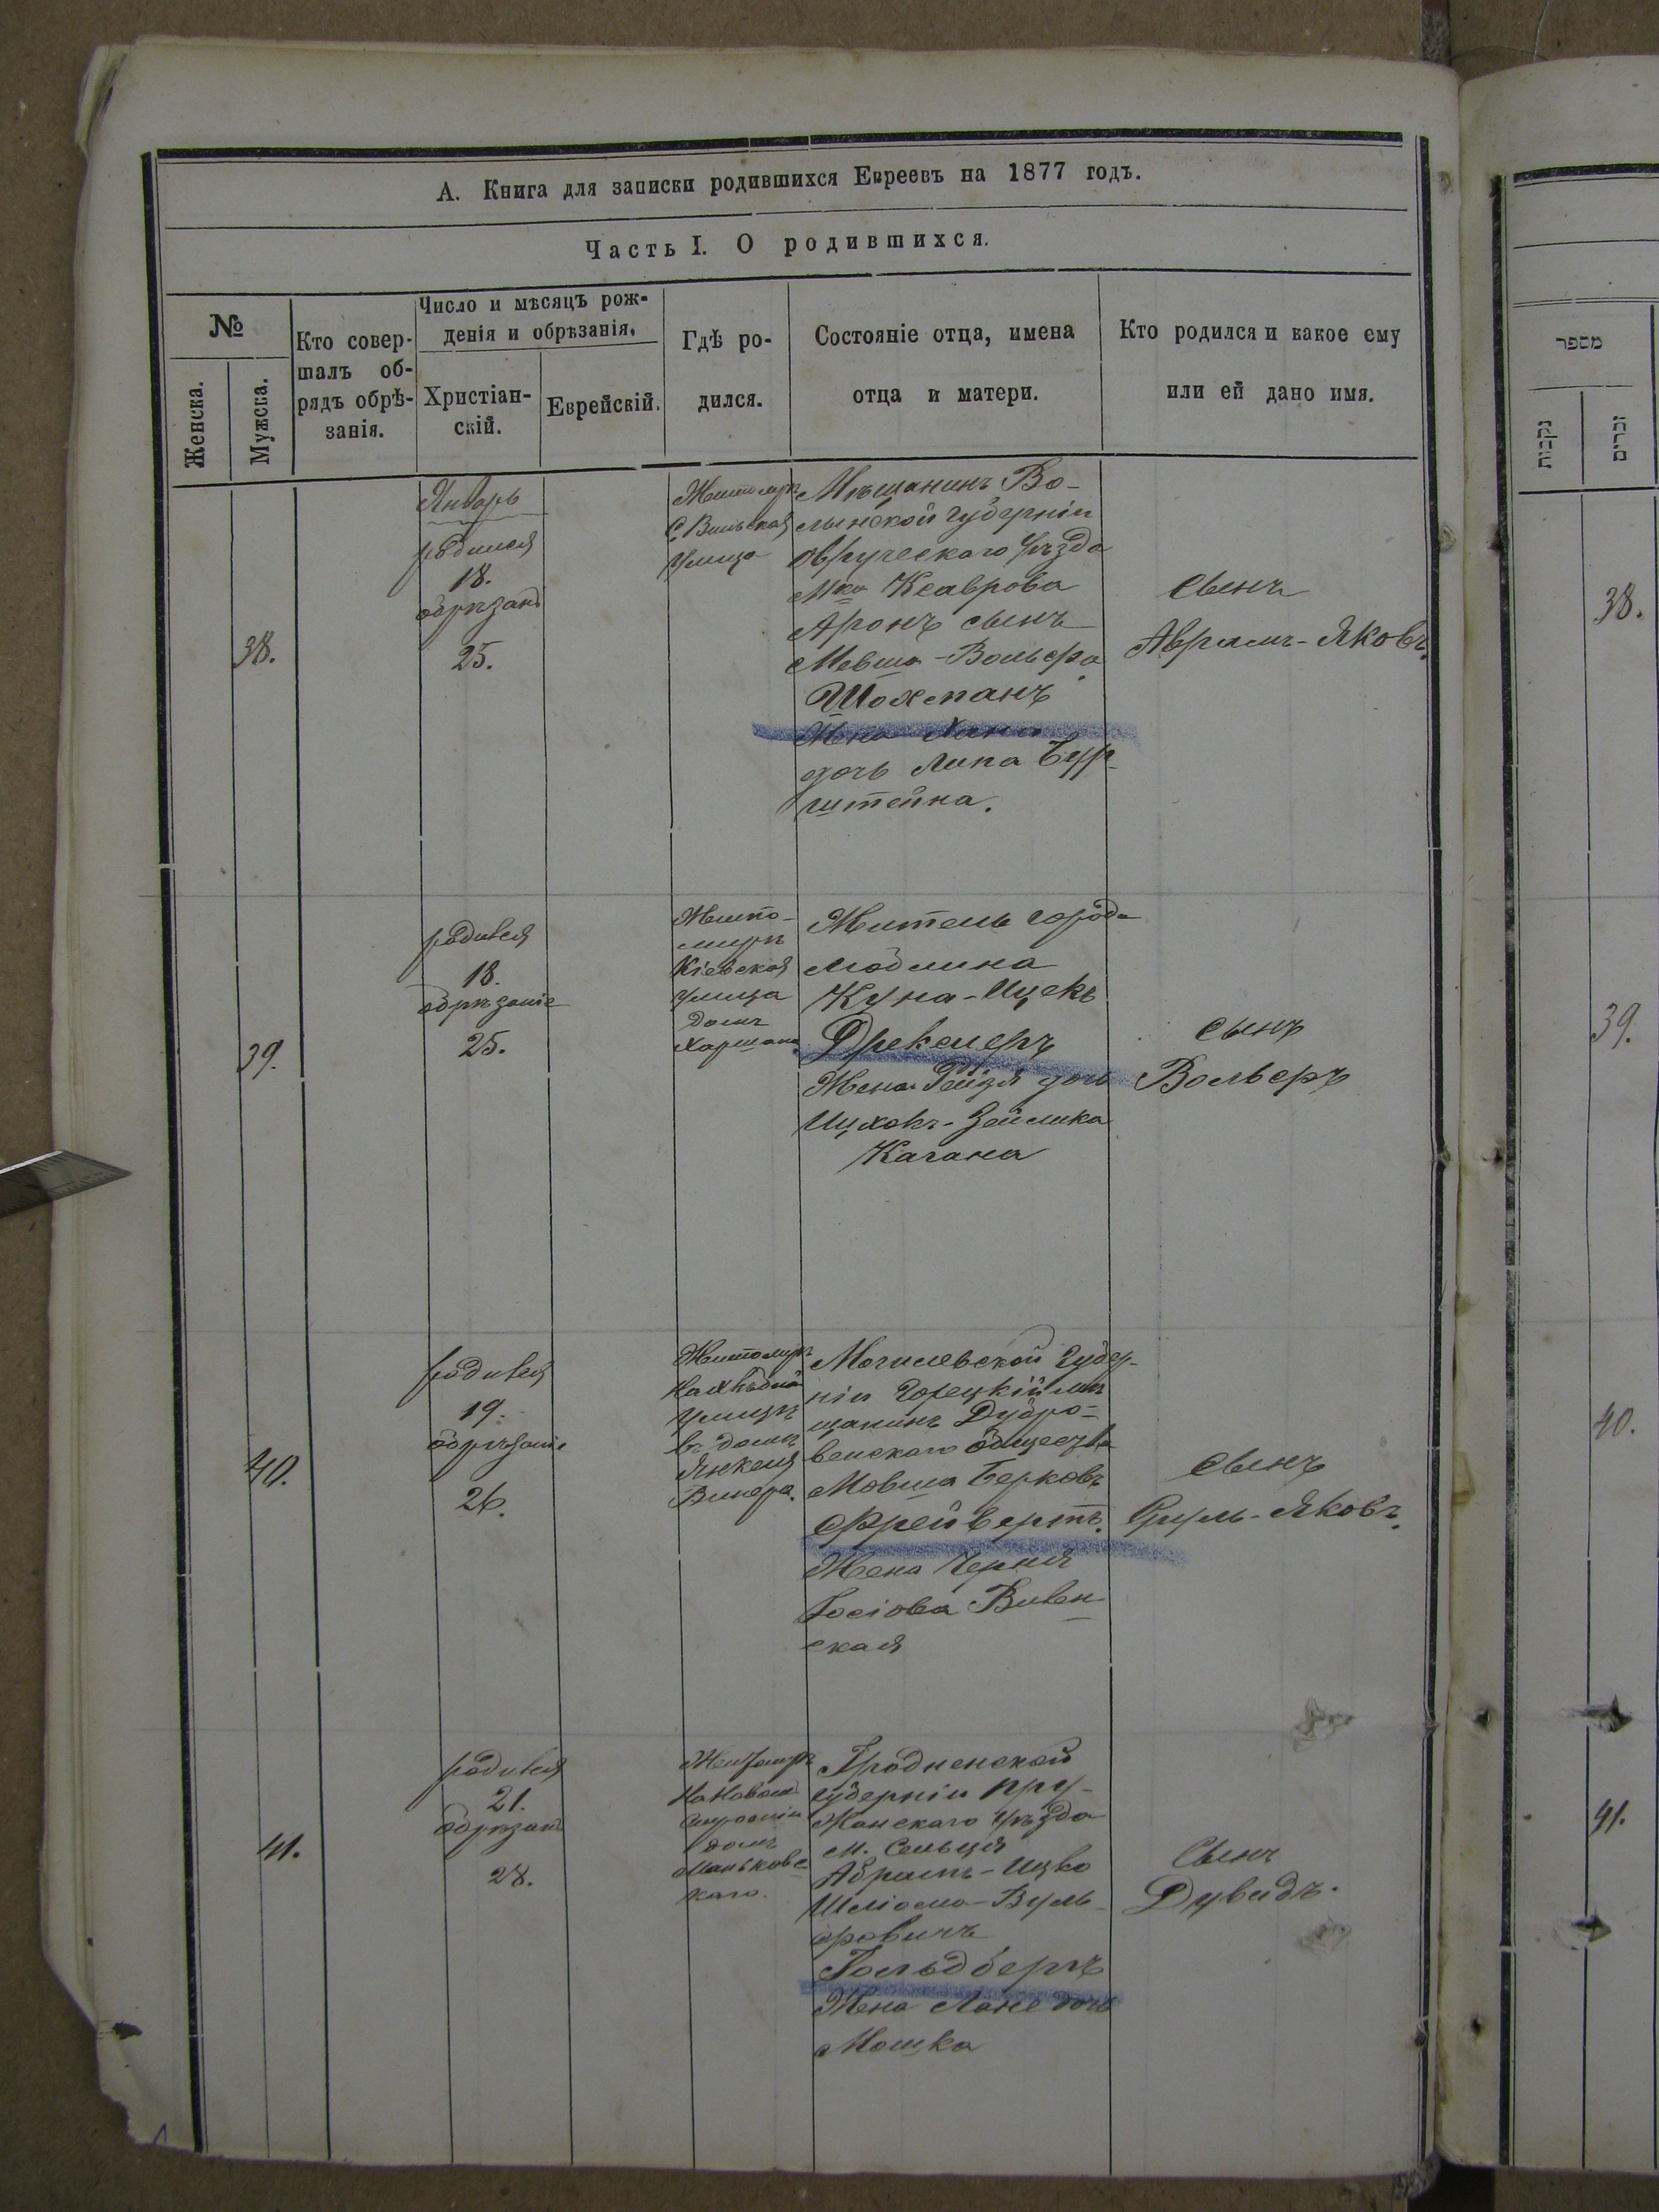 А. Книга для записки родившихся Евреевъ на 1877 годъ.
Часть I. О родившихся.
№
Женска.
Мужска.
Кто совер-
шалъ об-
рядъ обрѣ-
занія.
Число и мѣсяцъ рож-
денія и обрѣзанія.
Христіан-
скій.
Еврейскій.
Гдѣ ро-
дился.
Состояніе отца, имена
отца и матери.
Кто родился и какое ему
или ей дано имя.
38.
Январь
родился
18.
обрѣзанъ
25.
Житомиръ
Улица
Мѣщанинъ Во-
лынской губерніи
Овручскаго Уѣзда
Мка
Аронъ сынъ
Мевша-Вольфа
Шохманъ
Жена Хана
дочь Липа Бур-
штейна.
Сынъ
Аврамъ-Яковъ.
39.
родився
18.
обрѣзаніе
25.
Жито-
миръ
Кіевская
улица
домъ
Житель города
Модлина
Куна-Ицекъ
Дрекслеръ
Жена Рейзя дочь
Ицхокъ-Зейлика
Кагана
Сынъ
Вольверъ
40.
родився
19.
обрѣзаніе
26.
Житомиръ
Улицѣ
въ домѣ
Янкеля
Винера.
Могилевской Губер-
ніи Горецкій мѣ
щанинъ Дубро-
венскаго общества
Мовша Берковъ
Фрейвертъ.
Жена Черня
Іосіова
ская
Сынъ
Сруль-Яковъ.
41.
родився
21.
обрѣзанъ
28.
Житомиръ
строеніи
домъ
Маньковс
каго.
Гродненской
губерніи Пру-
жанскаго Уѣзда
м. Сельця
Абрамъ-Ицко
Шліома-Вуль-
фовичъ
Гольдбергъ
Жена Лане дочь
Мошка
Сынъ
Дувидъ.
מספר
נקבות
זכרים
38.
39.
40.
41.